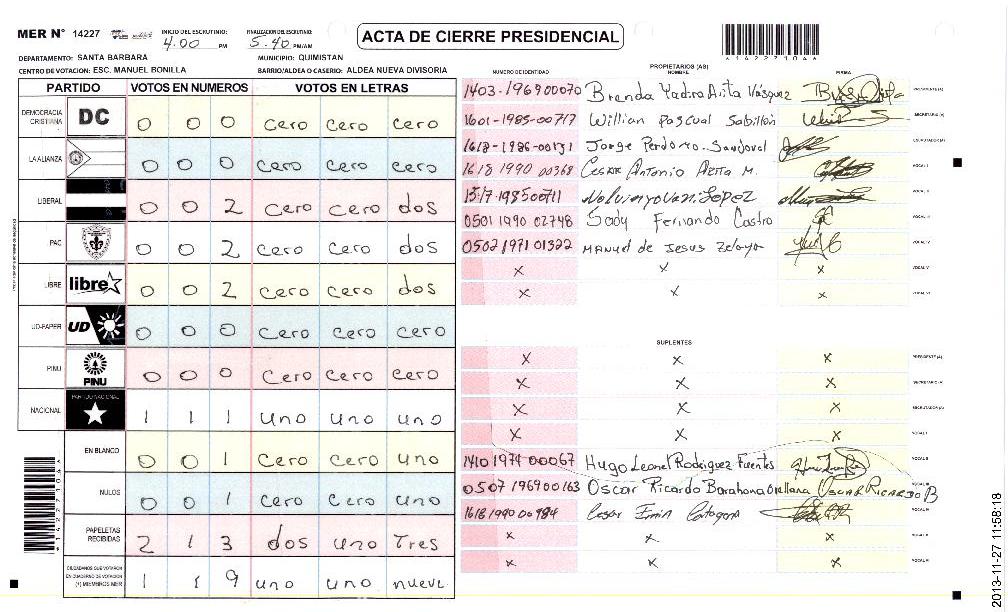 MER N° 14227
INICIO DEL ESCRUTINIO: 4:00 PM
FINALIZACION DEL ESCRUTINIO: 5:40 PM/AM
ACTA DE CIERRE PRESIDENCIAL
*14227104*
DEPARTAMENTO: SANTA BARBARA
MUNICIPIO: QUIMISTAN
CENTRO DE VOTACION: ESC. MANUEL BONILLA
BARRIO/ALDEA O CASERIO: ALDEA NUEVA DIVISORIA
PARTIDO VOTOS EN NUMEROS VOTOS EN LETRAS
DEMOCRACIA CRISTIANA DC 0 0 0 cero cero cero
LA ALIANZA 0 0 0 cero cero cero
LIBERAL 0 0 2 cero cero dos
PAC 0 0 2 cero cero dos
LIBRE libre 0 0 2 cero cero dos
UD-FAPER UD 0 0 0 cero cero cero
PINU PINU 0 0 0 cero cero cero
NACIONAL PARTIDO NACIONAL 1 1 1 uno uno uno
EN BLANCO 0 0 1 cero cero uno
NULOS 0 0 1 cero cero uno
PAPELETAS RECIBIDAS 2 1 3 dos uno Tres
CIUDADANOS QUE VOTARON EN CUADERNO DE VOTACION (+) MIEMBROS MER 1 1 9 uno uno nueve
*14227104*
NUMERO DE IDENTIDAD PROPIETARIOS (AS) NOMBRE FIRMA
1403-196900070 Brenda Yadira Arita Vasquez PRESIDENTE (A)
1601-1985-00717 Willian Pascual Sabillón SECRETARIO (A)
1618-1986-00131 Jorge Perdomo Sandoval ESCRUTADOR (A)
1618 1990 00368 Cesar Antonio Arita M. VOCAL I
VOCAL II
0501 1990 02748 Sady Fernando Castro VOCAL III
0502 1971 01322 Manuel de Jesus Zelaya VOCAL IV
X X X VOCAL V
X X X VOCAL VI
SUPLENTES
X X X PRESIDENTE (A)
X X X SECRETARIO (A)
X X X ESCRUTADOR (A)
X X X VOCAL I
1410 1974 00067 Hugo Leonel Rodriguez Fuentes VOCAL II
0507 196900163 Oscar Ricardo Barahona Orellana Oscar Ricardo B VOCAL III
1618 1990 00984 Cesar VOCAL IV
X X X VOCAL V
X X X VOCAL VI
2013-11-27 11:58:18